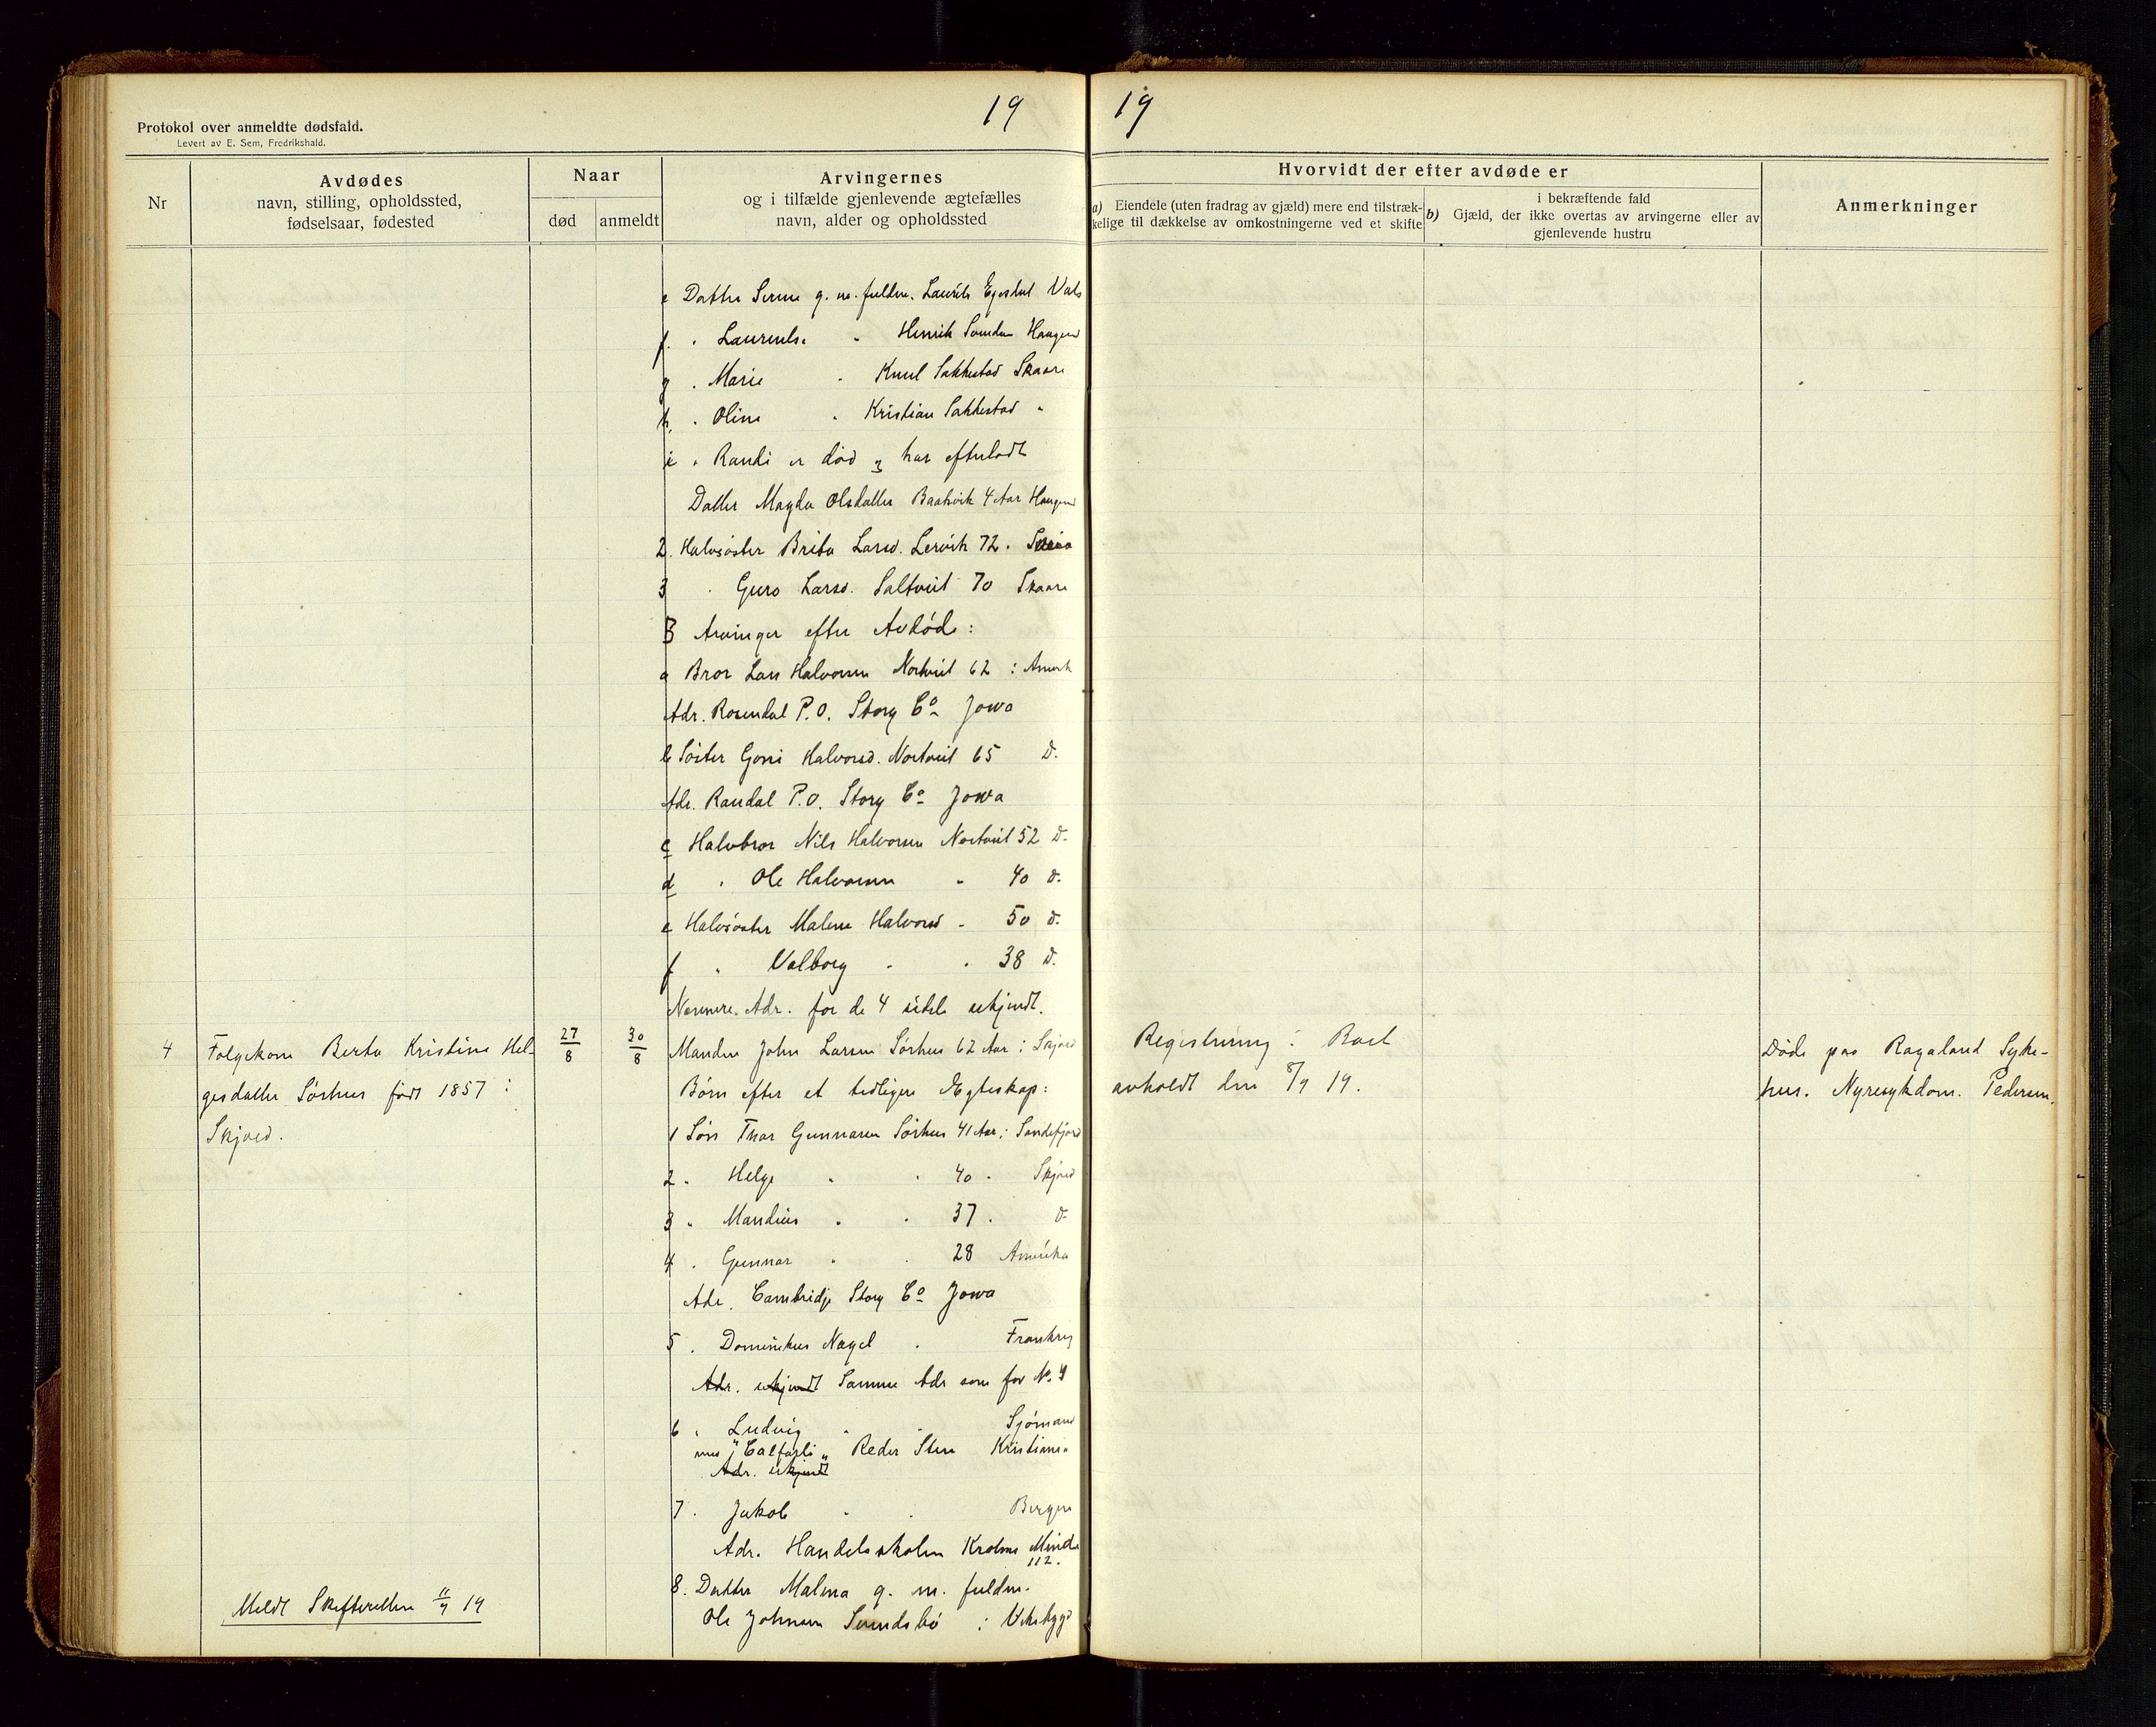 19
19
Protokol over anmeldte dødsfald.
Levert av E. Sem, Fredrikshald.
Nr
Avdødes
navn, stilling, opholdssted,
fødselsaar, fødested
Naar
død
anmeldt
Arvingernes
og i tilfælde gjenlevende ægtefælles
navn, alder og opholdssted
Hvorvidt der efter avdøde er
a) Eiendele (uten fradrag av gjæld) mere end tilstræk-
kelige til dækkelse av omkostningerne ved et skifte
i bekræftende fald
b) Gjæld, der ikke overtas av arvingerne eller av
gjenlevende hustru
Anmerkninger
e Datter Serine g. m. fuldm. Laurits Egeskal Vats
f. " Laurentse " Henrik Haugesd
g " Marie " Knut Sakkestad Skaare
h. " Oline " Kristian Sakkestad "
i " Randi er död og har efterladt
Datter Magda Olsdatter Baatsvik 4 Aar Haugesd
2. Halvsöster Brita Larsd. Lervik 72.
3 " Guro Larsd. Saltveit 70 Skaare
B Arvinger efter Avdöde:
a Bror Lars Halvorsen Nortveit 62 : Amerk
Adr. Rosendal P.O. Story Co Jowa
b Söster Goni Halvorsd. Nortveit 65 D.
Adr. Randal P.O. Story Co Jowa
c Halvbror Nils Halvorsen Nortveit 52 D.
d " Ole Halvorsen " 40 D.
e Halvsöster Malene Halvorsd " 50 D.
f " Valborg " " 38 D.
Nærmere Adr. for de 4 sidste ukjendt.
4 Folgekone Berta Kristine Hel- 27/8 30/8 Manden John Larsen Sörhus 62 Aar i Skjold Registrering i Boet Döde paa Rogaland Syke-
gesdatter Sörhus födt 1857 i Börn efter et tidligere Egteskap: avholdt den 8/9 19. hus. Nyresykdom. Pedersen.
Skjold. 1 Sön Tnar Gunnarsen Sörhus 41 Aar i Sandefjord
2 " Helge " " 40 " Skjold
3 " Mandius " " 37 " D
4 " Gunnar " " 28 Amerika
Adr. Cambridje Story Co Jowa
5 " Dominikus Nagel " Frankrig
Adr. ukjendt Samme Adr som for No. 4
6 " Ludvig " " Sjömand
med "Calfarli" Reder Sten Kristiania
Adr. ukjendt
7 " Jakob " " Bergen
Adr. Handelsskolen Minde
112.
8. Datter Malena g. m. fuldm.
Meldt Skifteretten 11/9 19 Ole Johnsen Sundsbö i Viksbygd